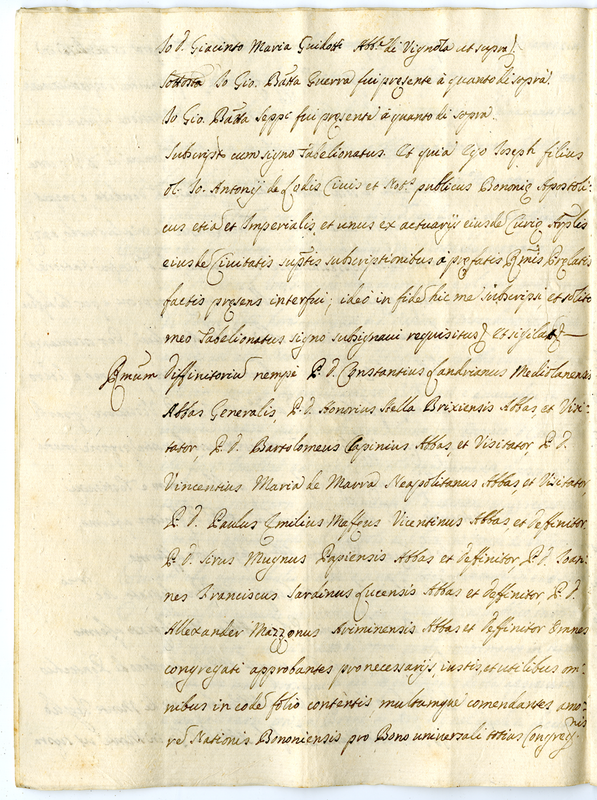 Io D. Giacinto Maria Guidotti Abb.e di Vignola ut supra).
Io Gio. Batta Guerra fui presente à quanto di sopra.
Io Gio. Batta Seppi fui presente à quanto di sopra.
Subscript cum signo Tabelionatus. Et quia Ego Joseph filius
ol. Io. Antonij de Lodis Civis et Not.s publicus Bononię Apostoli-
cus etiā et Imperialis et unus ex actuarijs eiusdē Curię Aplis
eiusdē Civitatis suptis subscriptionibus à pręfatis Rmis Pręlatis
factis pręsens interfui; ideò in fidē hic me subscripsi et solito
meo Tabelionatus signo subsignavi requisitus) et sigilat
Rmum Diffinitoriū nempè P. D. Constantius Landrianus Mediolanensis
Abbas Generalis, P. D. Honorius Stella Brixiensis Abbas, et Visi-
tator, P. D. Bartolomeus Capinius Abbas, et Visitator, P. D.
Vincentius Maria de Marra Neapolitanus Abbas, et Visitator,
P. D. Paulus Emilius Maffeus Vicentinus Abbas, et deffinitor.
P. D. Sirus Mugnus Papiensis Abbas et deffinitor, P. D. Ioan-
nes Franciscus Sardinus Lucensis Abbas et deffinitor, P. D.
Allexander Mazzonus Ariminensis Abbas et deffinitor Omnes
congregati approbantes pro necessarijs, iustis, et utilibus om-
nibus in codē folio contentis, multumque comendantes amo-
rē Nationis Bononiensis pro Bono universali totius Congreg.nis